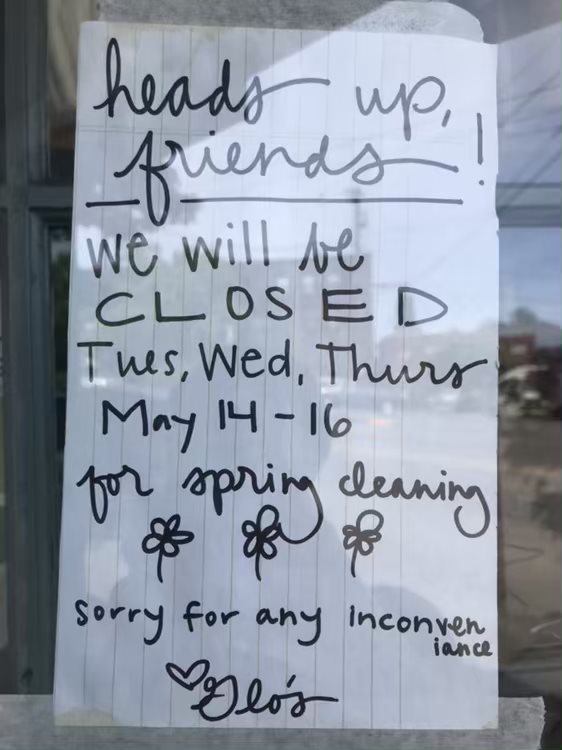 heads up,
friends!
we will be
CLOSED
Tues, Wed, Thurs
May 14-16
for spring cleaning
sorry for any inconven
iance
Glo's